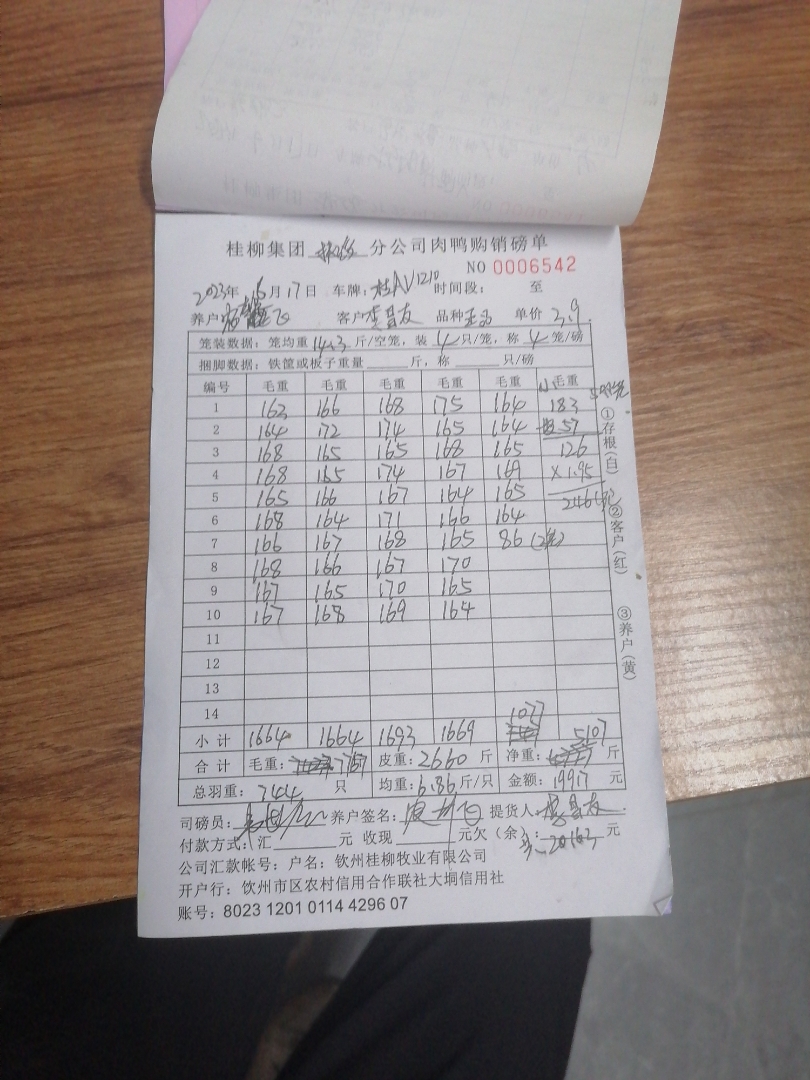 桂柳集团 分公司肉鸭购销磅单
NO 0006542
2023年 5月17日 车牌: 桂N1210 时间段: 至
养户: 飞 客户: 李昌友 品种 单价 3.9
笼装数据: 笼均重 14.3 斤/空笼, 装 4 只/笼, 称 4 笼/磅
捆脚数据: 铁筐或板子重量 斤, 称 只/磅
编号 毛重 毛重 毛重 毛重 毛重 小毛重
1 163 166 168 175 164 183
2 164 172 174 165 164 57
3 168 165 165 168 165 126
4 168 165 174 167 169 ×1.95
5 165 166 167 164 165 246
6 168 164 171 166 164
7 166 167 168 165 86 (2笼)
8 168 166 167 170
9 167 165 170 165
10 167 168 169 164
11
12
13
14 1077
小计 1664 1664 1693 1669 5107
合计 毛重: 7767 皮重: 2660 斤 净重: 斤
总羽重: 744 只 均重: 6.86 斤/只 金额: 19917 元
司磅员: 养户签名: 提货人: 李昌友
付款方式: 汇 元 收现 元欠(余): 20163 元
公司汇款帐号: 户名: 钦州桂柳牧业有限公司
开户行: 钦州市区农村信用合作联社大垌信用社
账号: 8023 1201 0114 4296 07
①存根(白)
②客户(红)
③养户(黄)